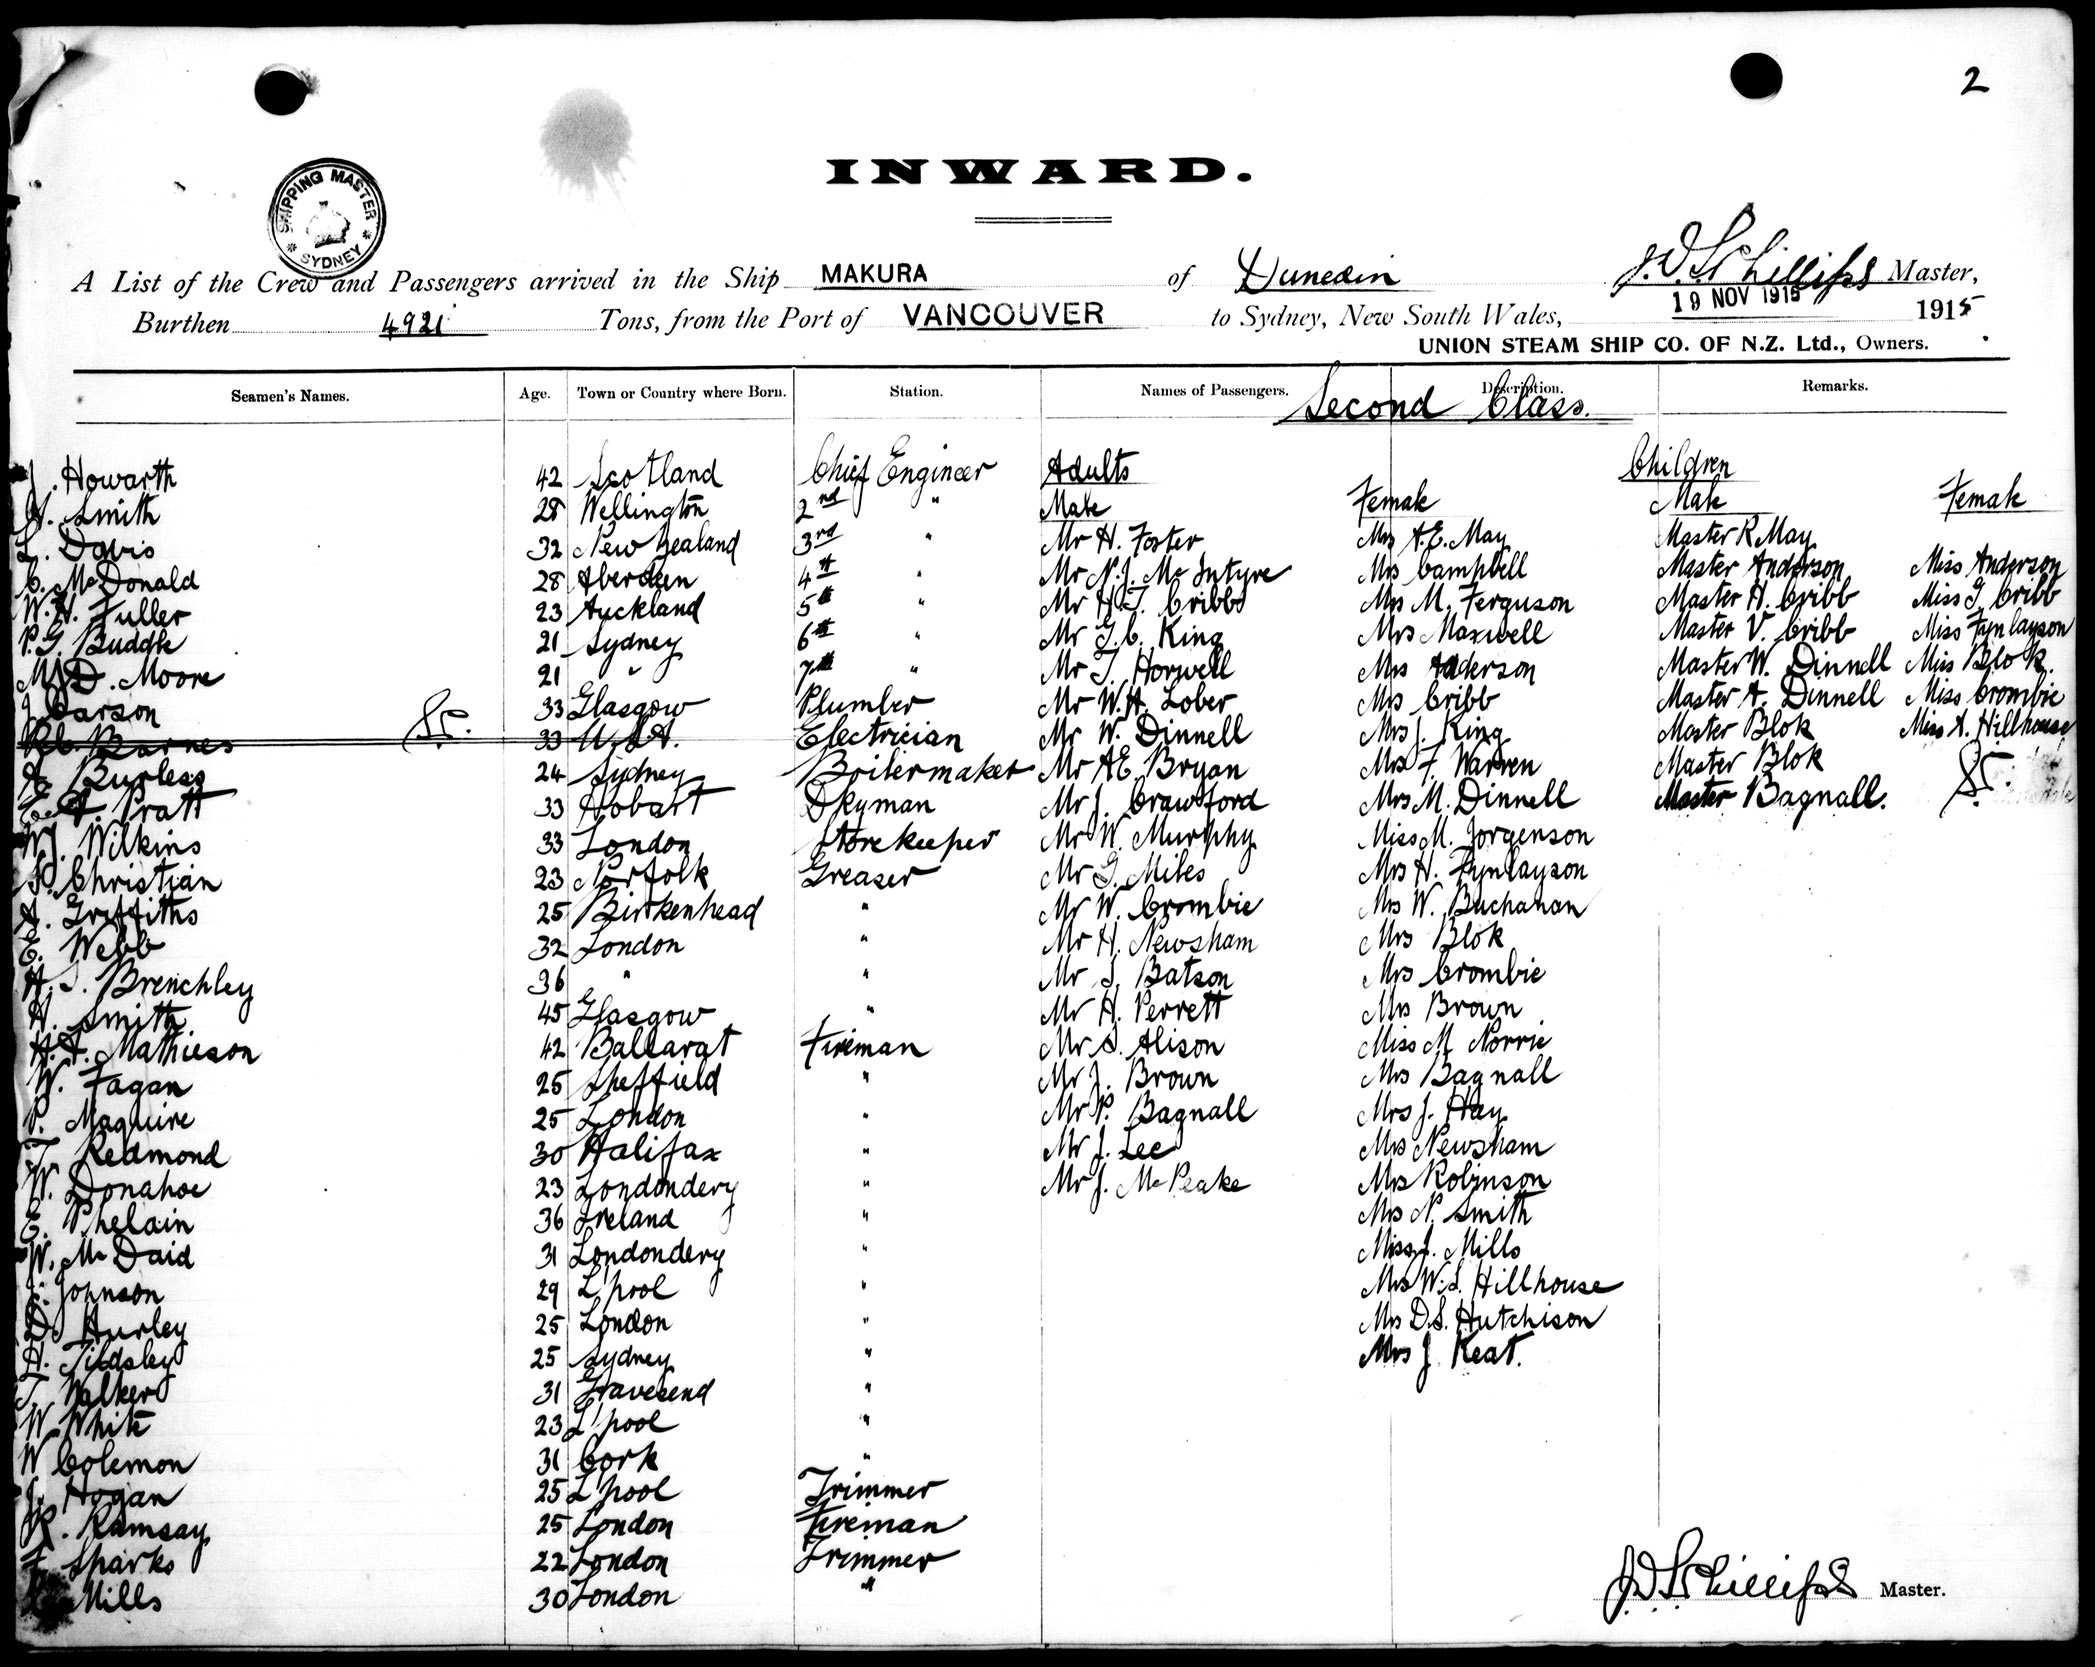 2
SHIPPING MASTER
* SYDNEY *
INWARD.
A List of the Crew and Passengers arrived in the Ship MAKURA of Dunedin J.D.S. Phillips Master,
19 NOV 1915
Burthen 4921 Tons, from the Port of VANCOUVER to Sydney, New South Wales, 1915
UNION STEAM SHIP CO. OF N.Z. Ltd., Owners.
Seamen's Names. Age. Town or Country where Born. Station. Names of Passengers. Description. Remarks.
Second Class.
Adults Children
Male Female Male Female
J. Howarth 42 Scotland Chief Engineer
Smith 28 Wellington 2nd "
L. Davis 32 New Zealand 3rd "
C. McDonald 28 Aberdeen 4th "
W.H. Fuller 23 Auckland 5th "
P.G. Buddle 21 Sydney 6th "
M.D. Moore 21 " 7th "
J Carson 33 Glasgow Plumber
Barnes 33 U.S.A. Electrician
A Burless 24 Sydney Boilermaker
Pratt 33 Hobart Dkyman
W.J. Wilkins 33 London Storekeeper
Christian 23 Norfolk Greaser
A. Griffiths 25 Birkenhead "
E. Webb 32 London "
H.S. Brenchley 36 " "
H. Smith 45 Glasgow "
Mathieson 42 Ballarat Fireman
W. Fagan 25 Sheffield "
P. Maguire 25 London "
T. Redmond 30 Halifax "
W. Donahoe 23 Londondery "
E. Phelain 36 Ireland "
W. McDaid 31 Londondery "
Johnson 29 L'pool "
D. Hurley 25 London "
H. Tildsley 25 Sydney "
T. Walker 31 Gravesend "
W White 23 L'pool "
W Colemon 31 Cork "
J. Hogan 25 L'pool Trimmer
R. Ramsay 25 London Fireman
F Sparks 22 London Trimmer
Mills 30 London "
Mr H. Foster
Mr N.J. McIntyre
Mr H.T. Cribb
Mr G.C. King
Mr T. Horwell
Mr W.A. Lober
Mr W. Dinnell
Mr A.E. Bryan
Mr J. Crawford
Mr W. Murphy
Mr G. Miles
Mr W. Crombie
Mr H. Newsham
Mr S. Batson
Mr H. Perrett
Mr S. Alison
Mr J. Brown
Mr P. Bagnall
Mr J. Lee
Mr J. McPeake
Mrs A.E. May
Mrs Campbell
Mrs M. Ferguson
Mrs Maxwell
Mrs Anderson
Mrs Cribb
Mrs J. King
Mrs F. Warren
Mrs M. Dinnell
Miss M. Jorgenson
Mrs H. Fynlayson
Mrs W. Buchanan
Mrs Blok
Mrs Crombie
Mrs Brown
Miss M Norrie
Mrs Bagnall
Mrs J. Hay
Mrs Newsham
Mrs Robinson
Mrs N. Smith
Miss J. Mills
Mrs W.S. Hillhouse
Mrs D.S. Hutchison
Mrs J. Keat.
Master R May
Master Anderson
Master H. Cribb
Master V. Cribb
Master W. Dinnell
Master A. Dinnell
Master Blok
Master Blok
Master Bagnall.
Miss Anderson
Miss G Cribb
Miss Fynlayson
Miss Blok.
Miss Crombie
Miss A. Hillhouse
J.D.S. Phillips Master.